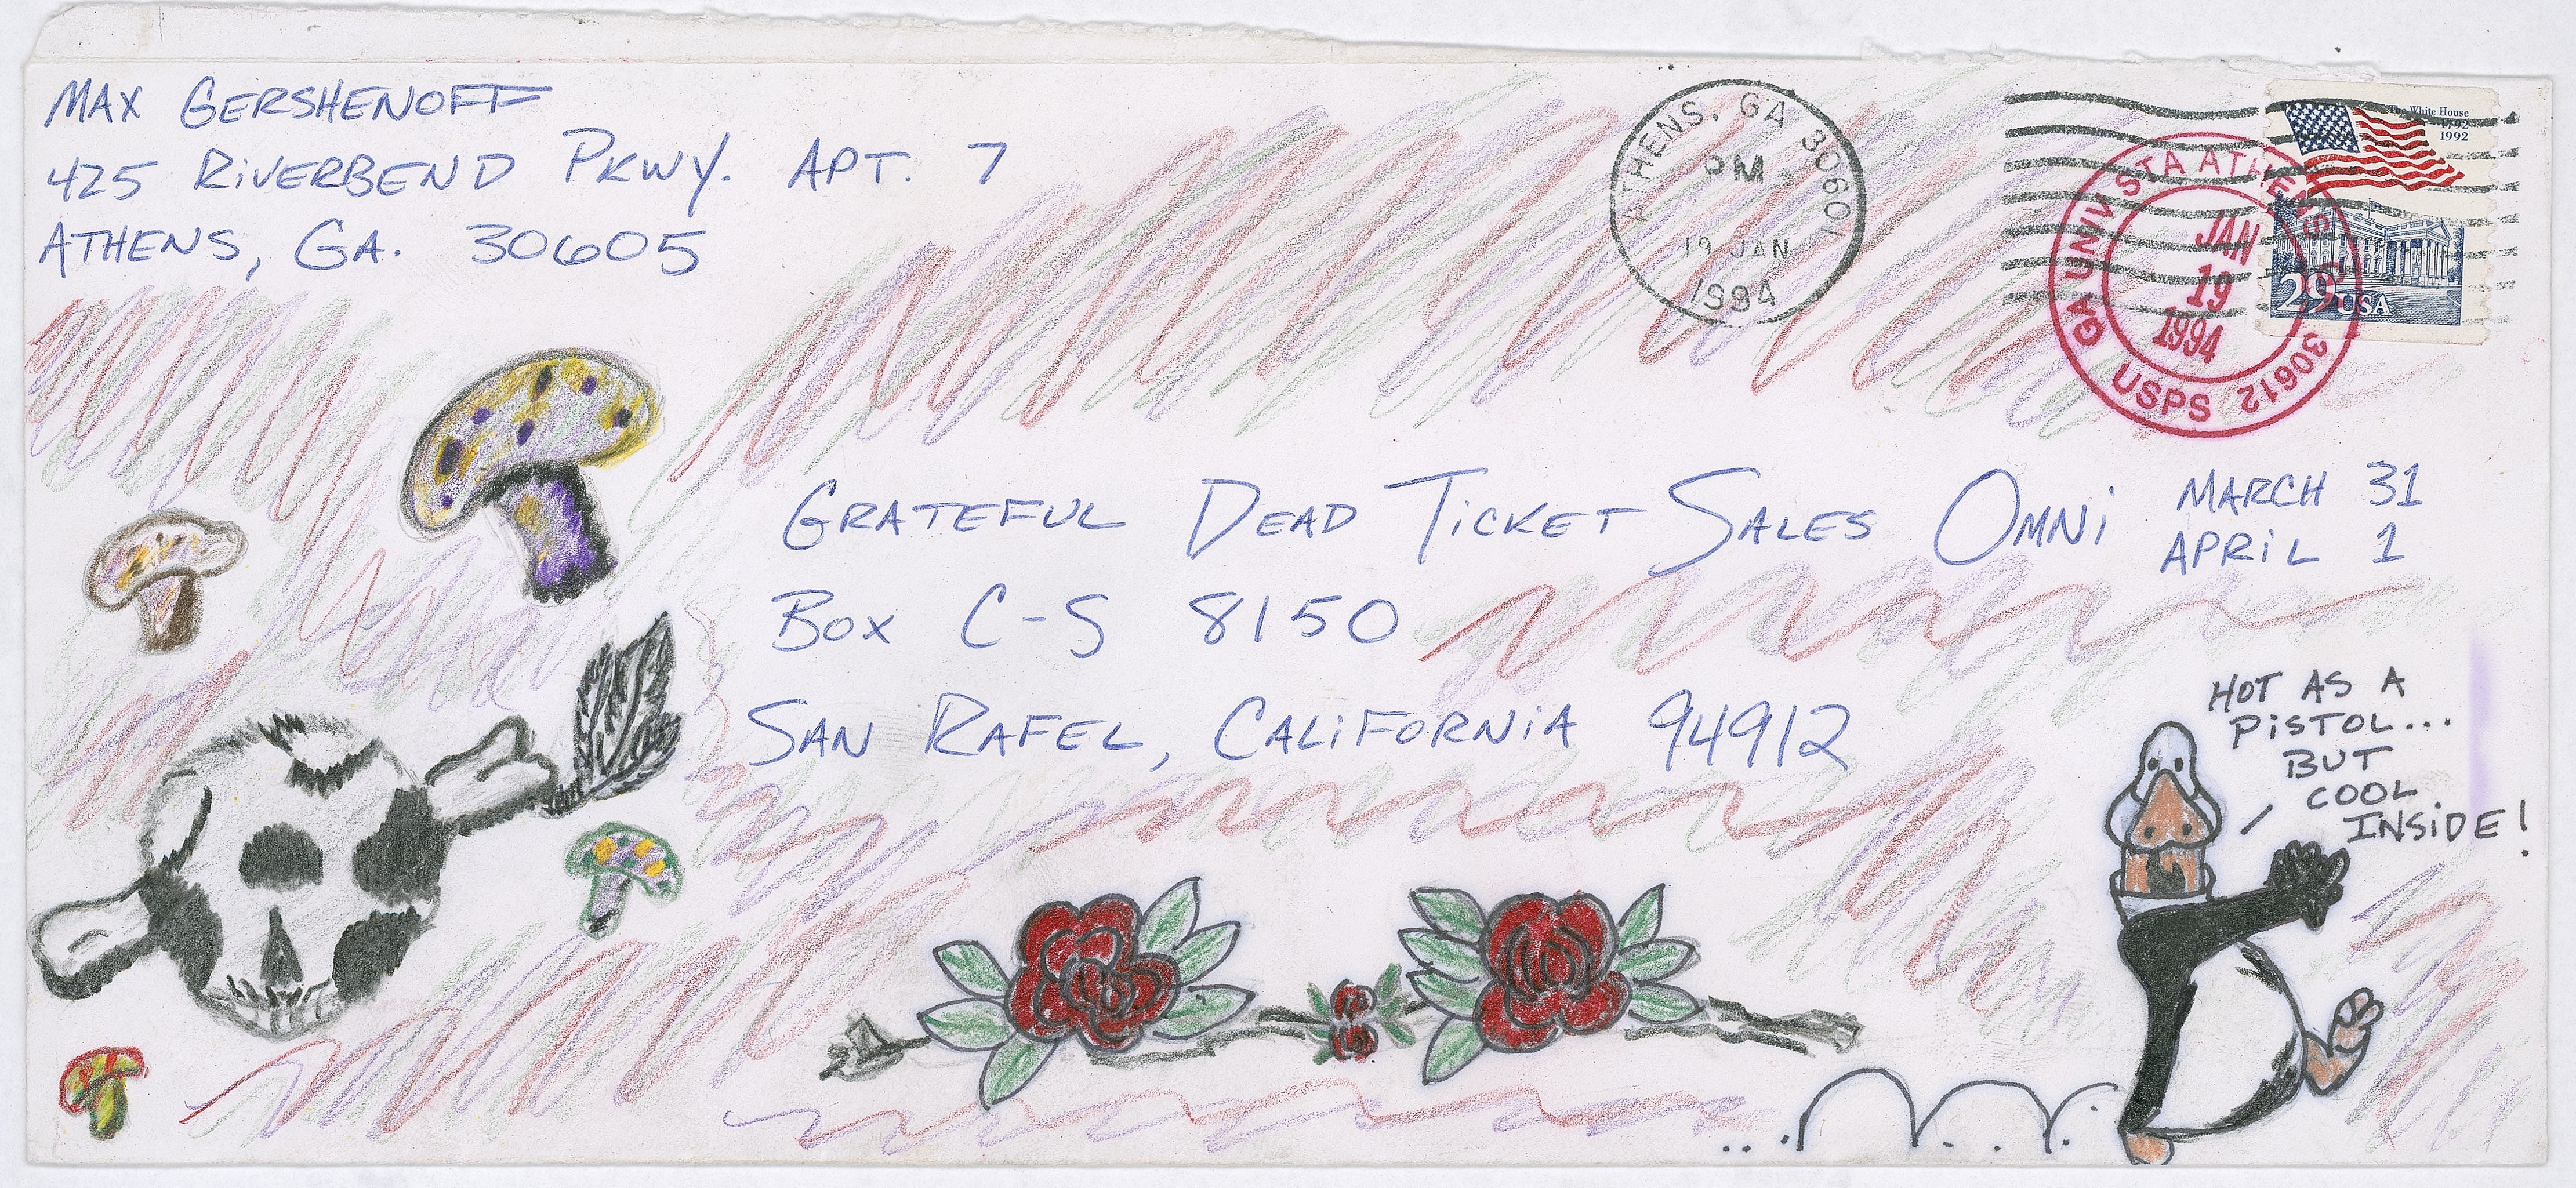 MAX GERSHENOFF
425 RIVERBEND PKWY. APT. 7
ATHENS, GA. 30605
ATHENS, GA 30601
PM
19 JAN
1994
The White House
1992
29 USA
GA UNIV STA ATHENS
JAN
19
1994
USPS 30612
GRATEFUL DEAD TICKET SALES OMNI MARCH 31
APRIL 1
BOX C-S 8150
SAN RAFEL, CALIFORNIA 94912
HOT AS A
PISTOL...
BUT
COOL
INSIDE!